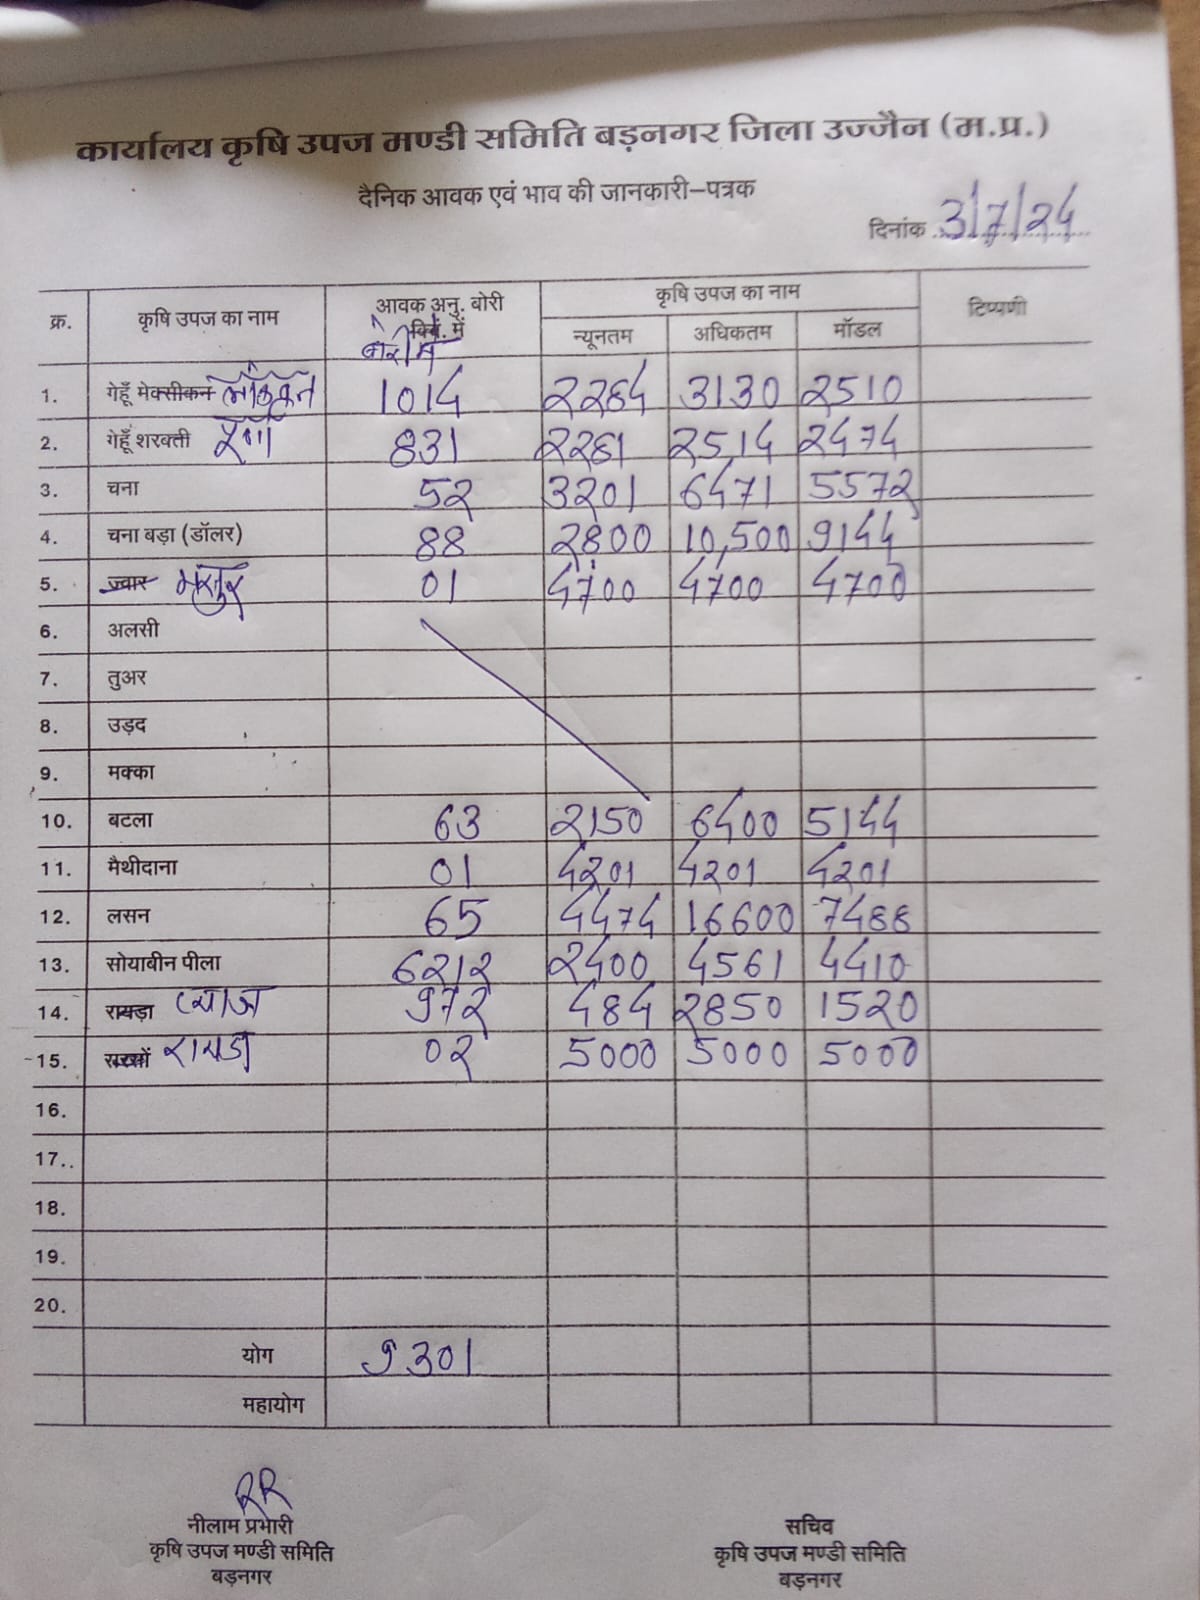 कार्यालय कृषि उपज मण्डी समिति बड़नगर जिला उज्जैन (म.प्र.)
दैनिक आवक एवं भाव की जानकारी–पत्रक
दिनांक 3/7/24
क्र. कृषि उपज का नाम आवक अनु. बोरी क्विं. में बोरी में कृषि उपज का नाम टिप्पणी
न्यूनतम अधिकतम मॉडल
1. गेहूँ मेक्सीकन लोकवन 1014 2264 3130 2510
2. गेहूँ शरबती 831 2261 2514 2474
3. चना 52 3201 6471 5572
4. चना बड़ा (डॉलर) 88 2800 10,500 9144
5. ज्वार मसुर 01 4700 4700 4700
6. अलसी
7. तुअर
8. उड़द
9. मक्का
10. बटला 63 2150 6400 5144
11. मैथीदाना 01 4201 4201 4201
12. लसन 65 4474 16600 7488
13. सोयाबीन पीला 6212 2400 4561 4410
14. रायड़ा प्याज 972 484 2850 1520
15. सरसों रायडा 02 5000 5000 5000
16.
17..
18.
19.
20.
योग 9301
महायोग
RR
नीलाम प्रभारी
कृषि उपज मण्डी समिति
बड़नगर
सचिव
कृषि उपज मण्डी समिति
बड़नगर